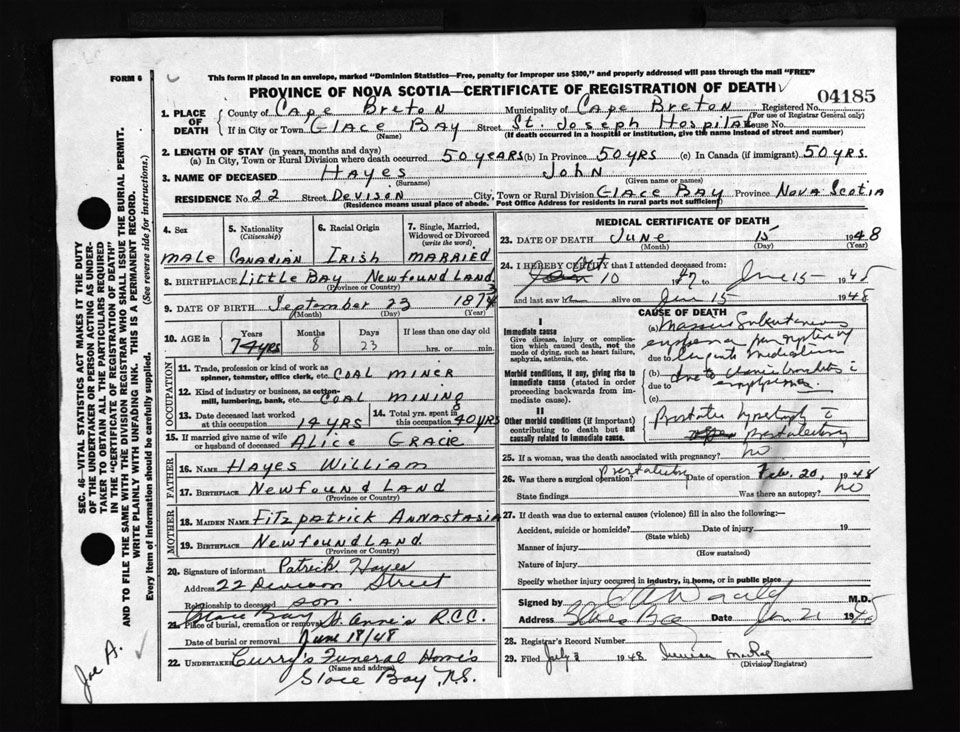 FORM 6
This form if placed in an envelope, marked "Dominion Statistics—Free, penalty for improper use $300," and properly addressed will pass through the mail "FREE"
PROVINCE OF NOVA SCOTIA—CERTIFICATE OF REGISTRATION OF DEATH
04185
1. PLACE OF DEATH
County of Cape Breton Municipality of Cape Breton Registered No.
(For use of Registrar General only)
If in City or Town Glace Bay Street St. Joseph Hospital House No.
(Name) (If death occurred in a hospital or institution, give the name instead of street and number)
2. LENGTH OF STAY (in years, months and days)
(a) In City, Town or Rural Division where death occurred 50 years (b) In Province 50 yrs (c) In Canada (if immigrant) 50 yrs.
3. NAME OF DECEASED Hayes John
(Surname) (Given name or names)
RESIDENCE No. 22 Street Devison City, Town or Rural Division Glace Bay Province Nova Scotia
(Residence means usual place of abode. Post Office Address for residents in rural parts not sufficient)
4. Sex
male
5. Nationality
(Citizenship)
Canadian
6. Racial Origin
Irish
7. Single, Married, Widowed or Divorced
(write the word)
married
8. BIRTHPLACE Little Bay Newfoundland
(Province or Country)
9. DATE OF BIRTH September 23 187
(Month) (Day) (Year)
10. AGE in
Years Months Days If less than one day old
74 yrs 8 23 hrs. or min.
OCCUPATION
11. Trade, profession or kind of work as spinner, teamster, office clerk, etc. Coal miner
12. Kind of industry or business, as cotton-mill, lumbering, bank, etc. Coal mining
13. Date deceased last worked at this occupation 14 yrs
14. Total yrs. spent in this occupation 40 yrs
15. If married give name of wife or husband of deceased Alice Grace
FATHER
16. NAME Hayes William
17. BIRTHPLACE Newfoundland
(Province or Country)
MOTHER
18. MAIDEN NAME Fitzpatrick Annastasia
19. BIRTHPLACE Newfoundland
(Province or Country)
20. Signature of informant Patrick Hayes
Address 22 Devison Street
Relationship to deceased son.
21. Place of burial, cremation or removal Glace Bay St. Anne's R.C.C.
Date of burial or removal June 18/48
22. UNDERTAKER Curry's Funeral Homes
(Name and address)
Glace Bay, N.S.
MEDICAL CERTIFICATE OF DEATH
23. DATE OF DEATH June 15 1948
(Month) (Day) (Year)
24. I HEREBY CERTIFY that I attended deceased from:
10 47 to June 15 19
and last saw alive on June 15 1948
CAUSE OF DEATH
I
Immediate cause
Give disease, injury or complication which caused death, not the mode of dying, such as heart failure, asphyxia, asthenia, etc.
(a) Massive Subcutaneous
due to
Morbid conditions, if any, giving rise to immediate cause (stated in order proceeding backwards from immediate cause).
(b) due to chronic bronchitis
due to emphysema.
(c)
II
Other morbid conditions (if important) contributing to death but not causally related to immediate cause.
Prostatic
prostatectomy
25. If a woman, was the death associated with pregnancy? no
26. Was there a surgical operation? Prostatectomy Date of operation Feb. 20, 1948
State findings Was there an autopsy? no
27. If death was due to external causes (violence) fill in also the following:—
Accident, suicide or homicide? Date of injury 19
(State which)
Manner of injury
(How sustained)
Nature of injury
Specify whether injury occurred in industry, in home, or in public place
Signed by M.D.
Address Glace Bay Date 21 19
28. Registrar's Record Number
29. Filed July 3 1948 Duncan MacRae
(Division Registrar)
SEC. 46—VITAL STATISTICS ACT MAKES IT THE DUTY
OF THE UNDERTAKER OR PERSON ACTING AS UNDER-
TAKER TO OBTAIN ALL THE PARTICULARS REQUIRED
IN THE "CERTIFICATE OF REGISTRATION OF DEATH"
AND TO FILE THE SAME WITH THE DIVISION REGISTRAR WHO SHALL ISSUE THE BURIAL PERMIT.
WRITE PLAINLY WITH UNFADING INK. THIS IS A PERMANENT RECORD.
Every item of information should be carefully supplied. (See reverse side for instructions.)
Joe A.